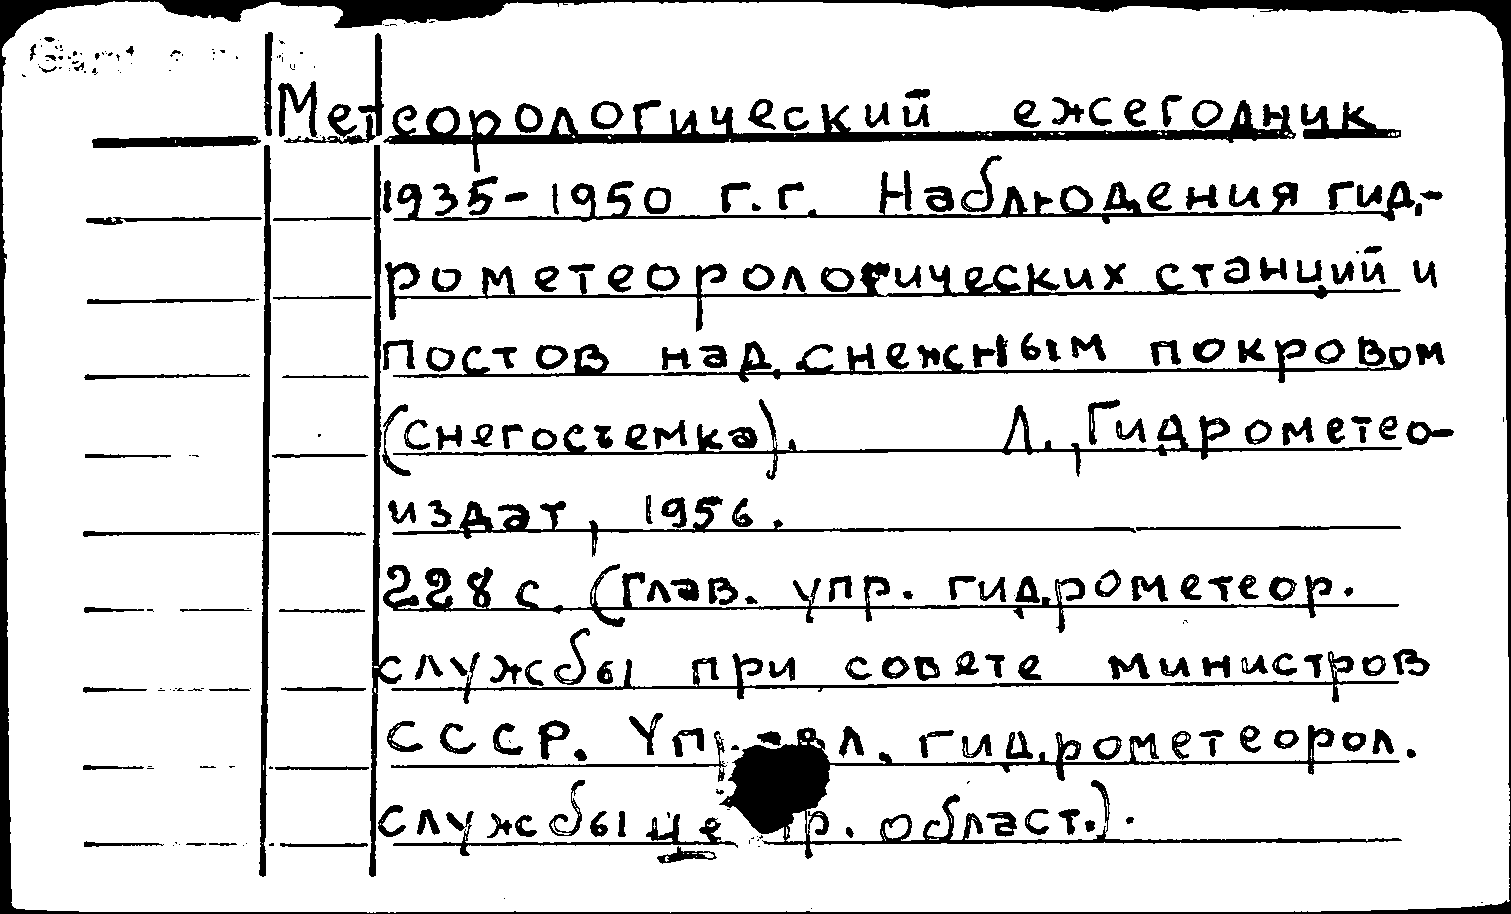 Метеорологический ежегодник
1935-1950 г.г. Наблюдения гид-
рометеорологических станций и
постов над снежным покровом
(снегосъемка). Л., Гидрометео-
издат, 1956.
228 с. (Глав. упр. гидрометеор.
службы при совете министров
СССР. Управл. гидрометеорол.
службы област.).